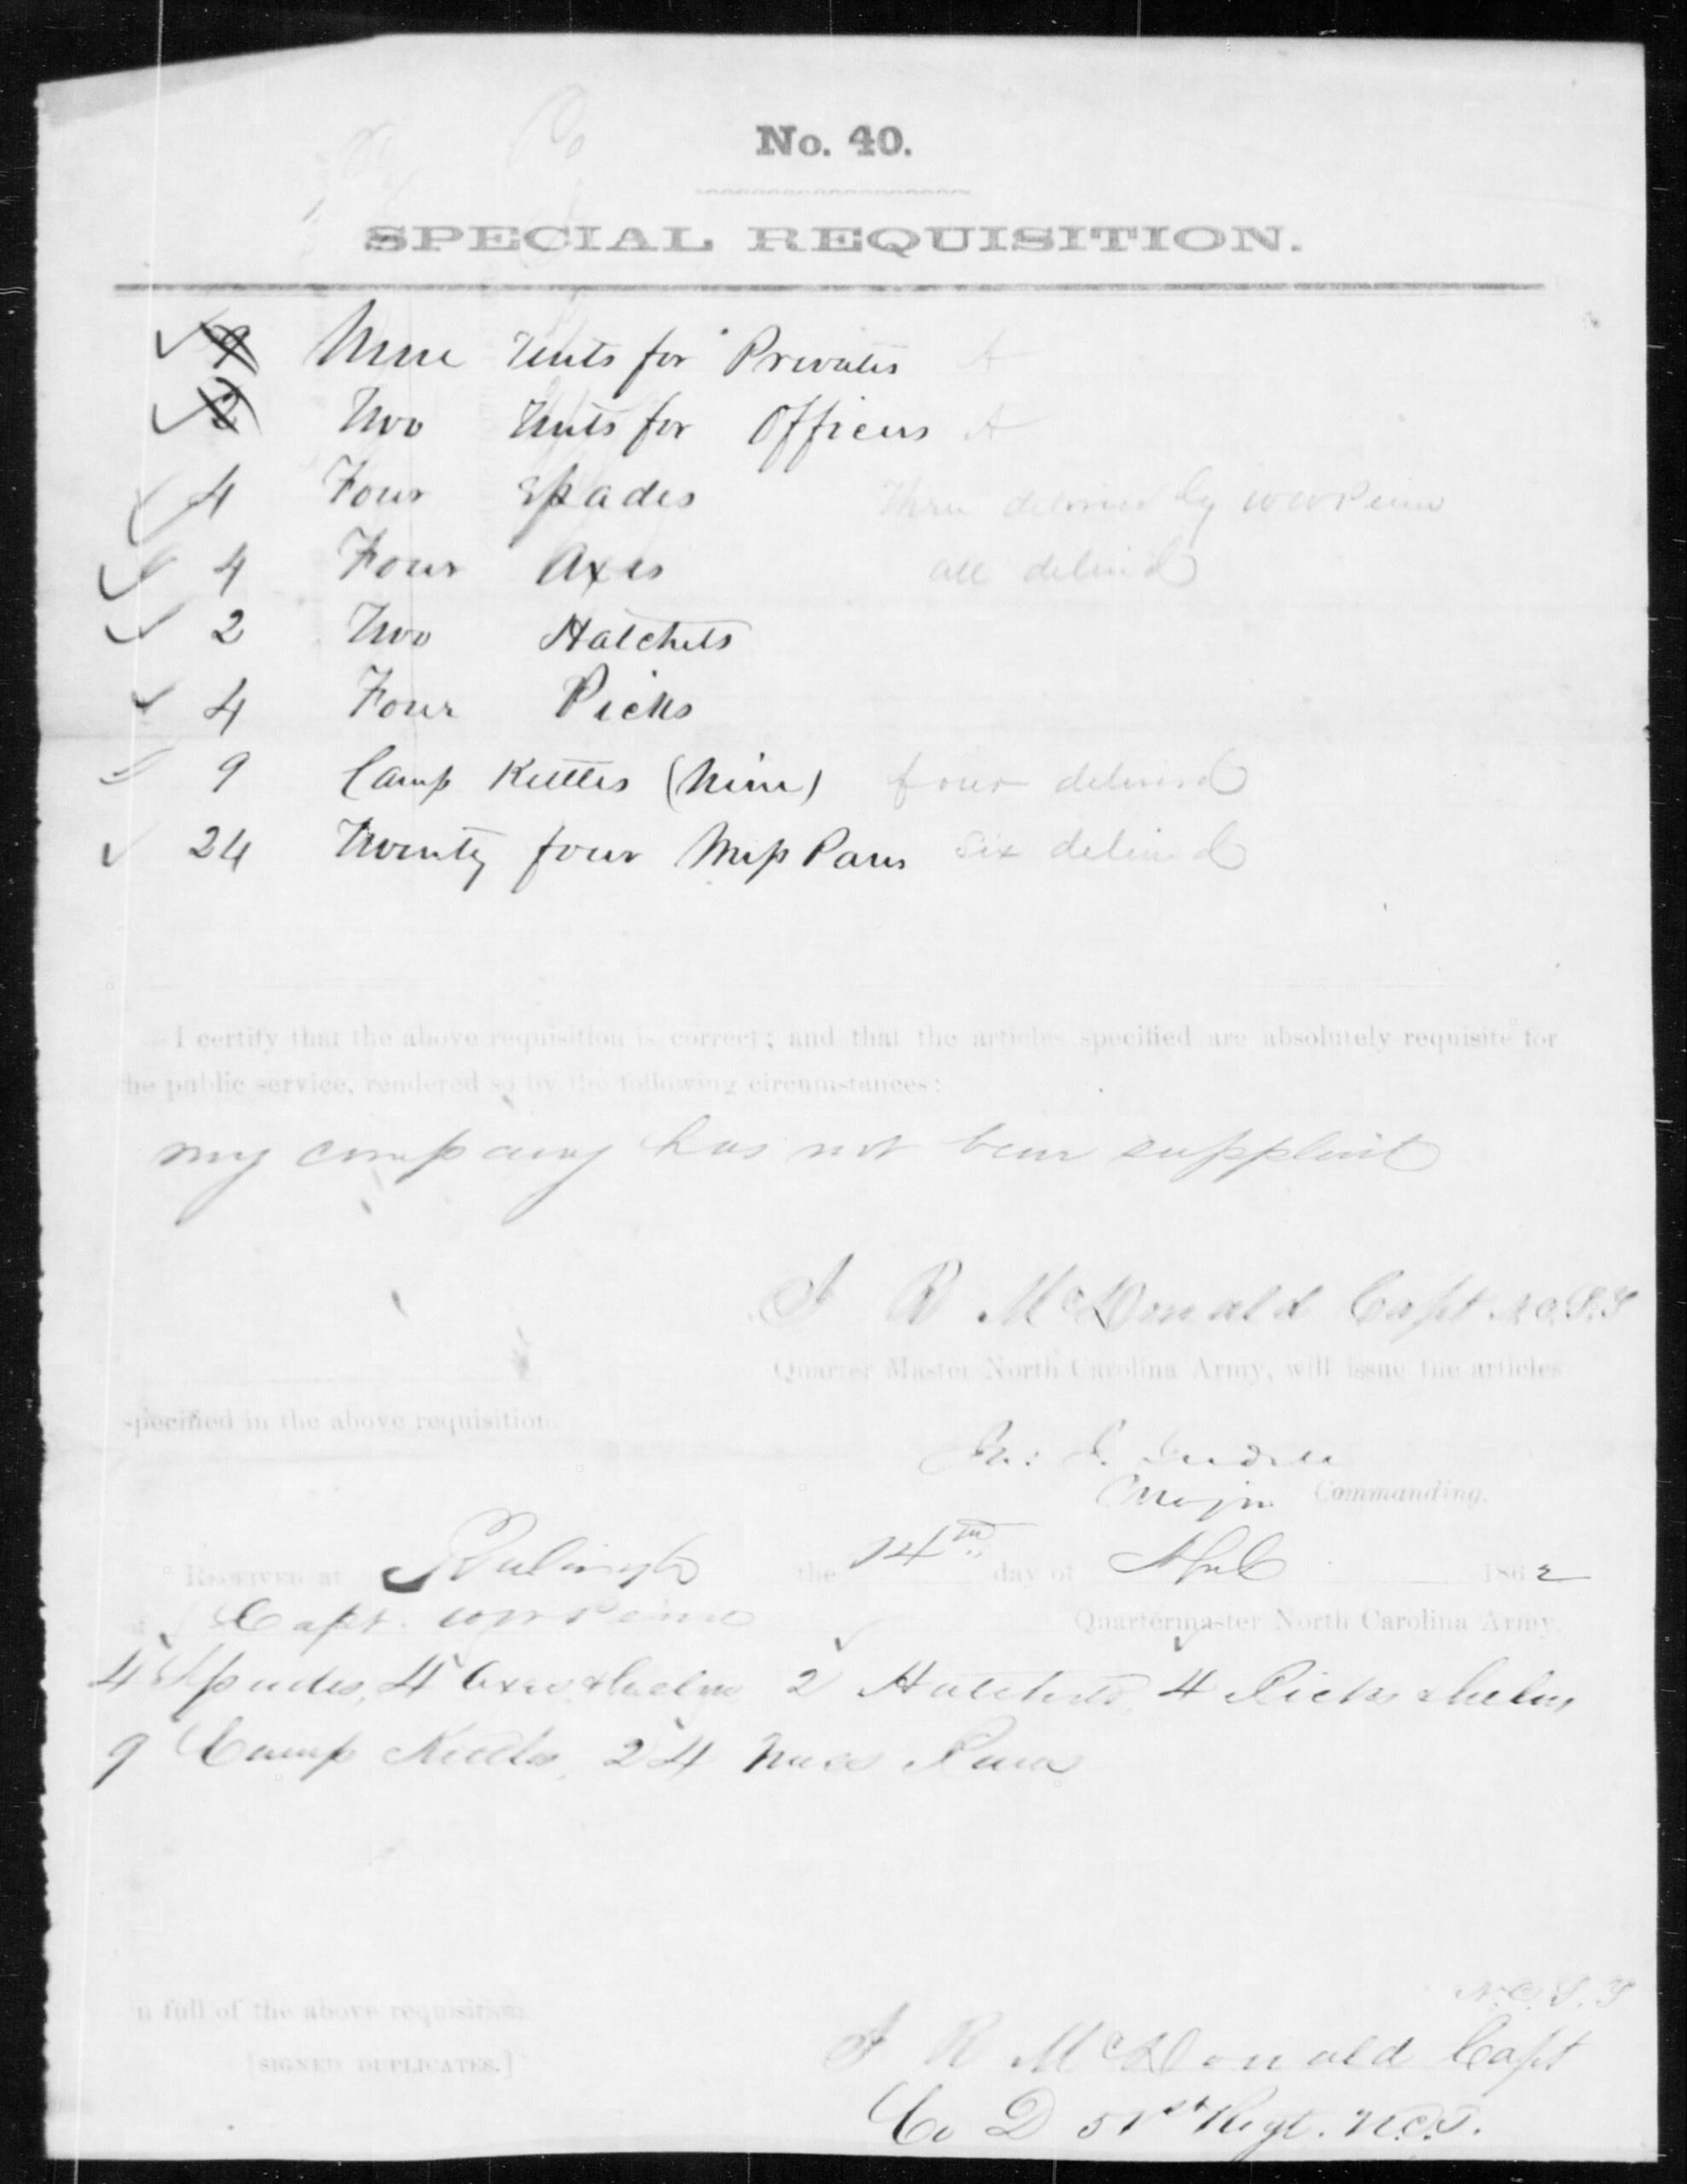 No. 40.
SPECIAL REQUISITION.
9 Nine Tents for Privates A
2 Two Tents for Officers A
4 Four Spades Three delivered by WWPeirce
4 Four Axes all deliverd
2 Two Hatchets
4 Four Picks
9 Camp Kettles (Nine) four deliverd
24 Twenty four Mess Pans six deliverd
I certify that the above requisition is correct; and that the articles specified are absolutely requisite for
the public service, rendered so by the following circumstances:
my company has not been supplied
J R McDonald Capt N.C.S.T
Quarter Master North Carolina Army, will issue the articles
specified in the above requisition.
Major Commanding.
Received at Raleigh the 14th day of April 1862
of Capt. WWPeirce Quartermaster North Carolina Army
4 Spades, 4 Axes & helves 2 Hatchets, 4 Picks & helves
9 Camp Kettles, 24 Mess Pans
in full of the above requisition
[SIGNED DUPLICATES.]
N.C.S.T
J R McDonald Capt
Co D 51st Regt. N.C.T.